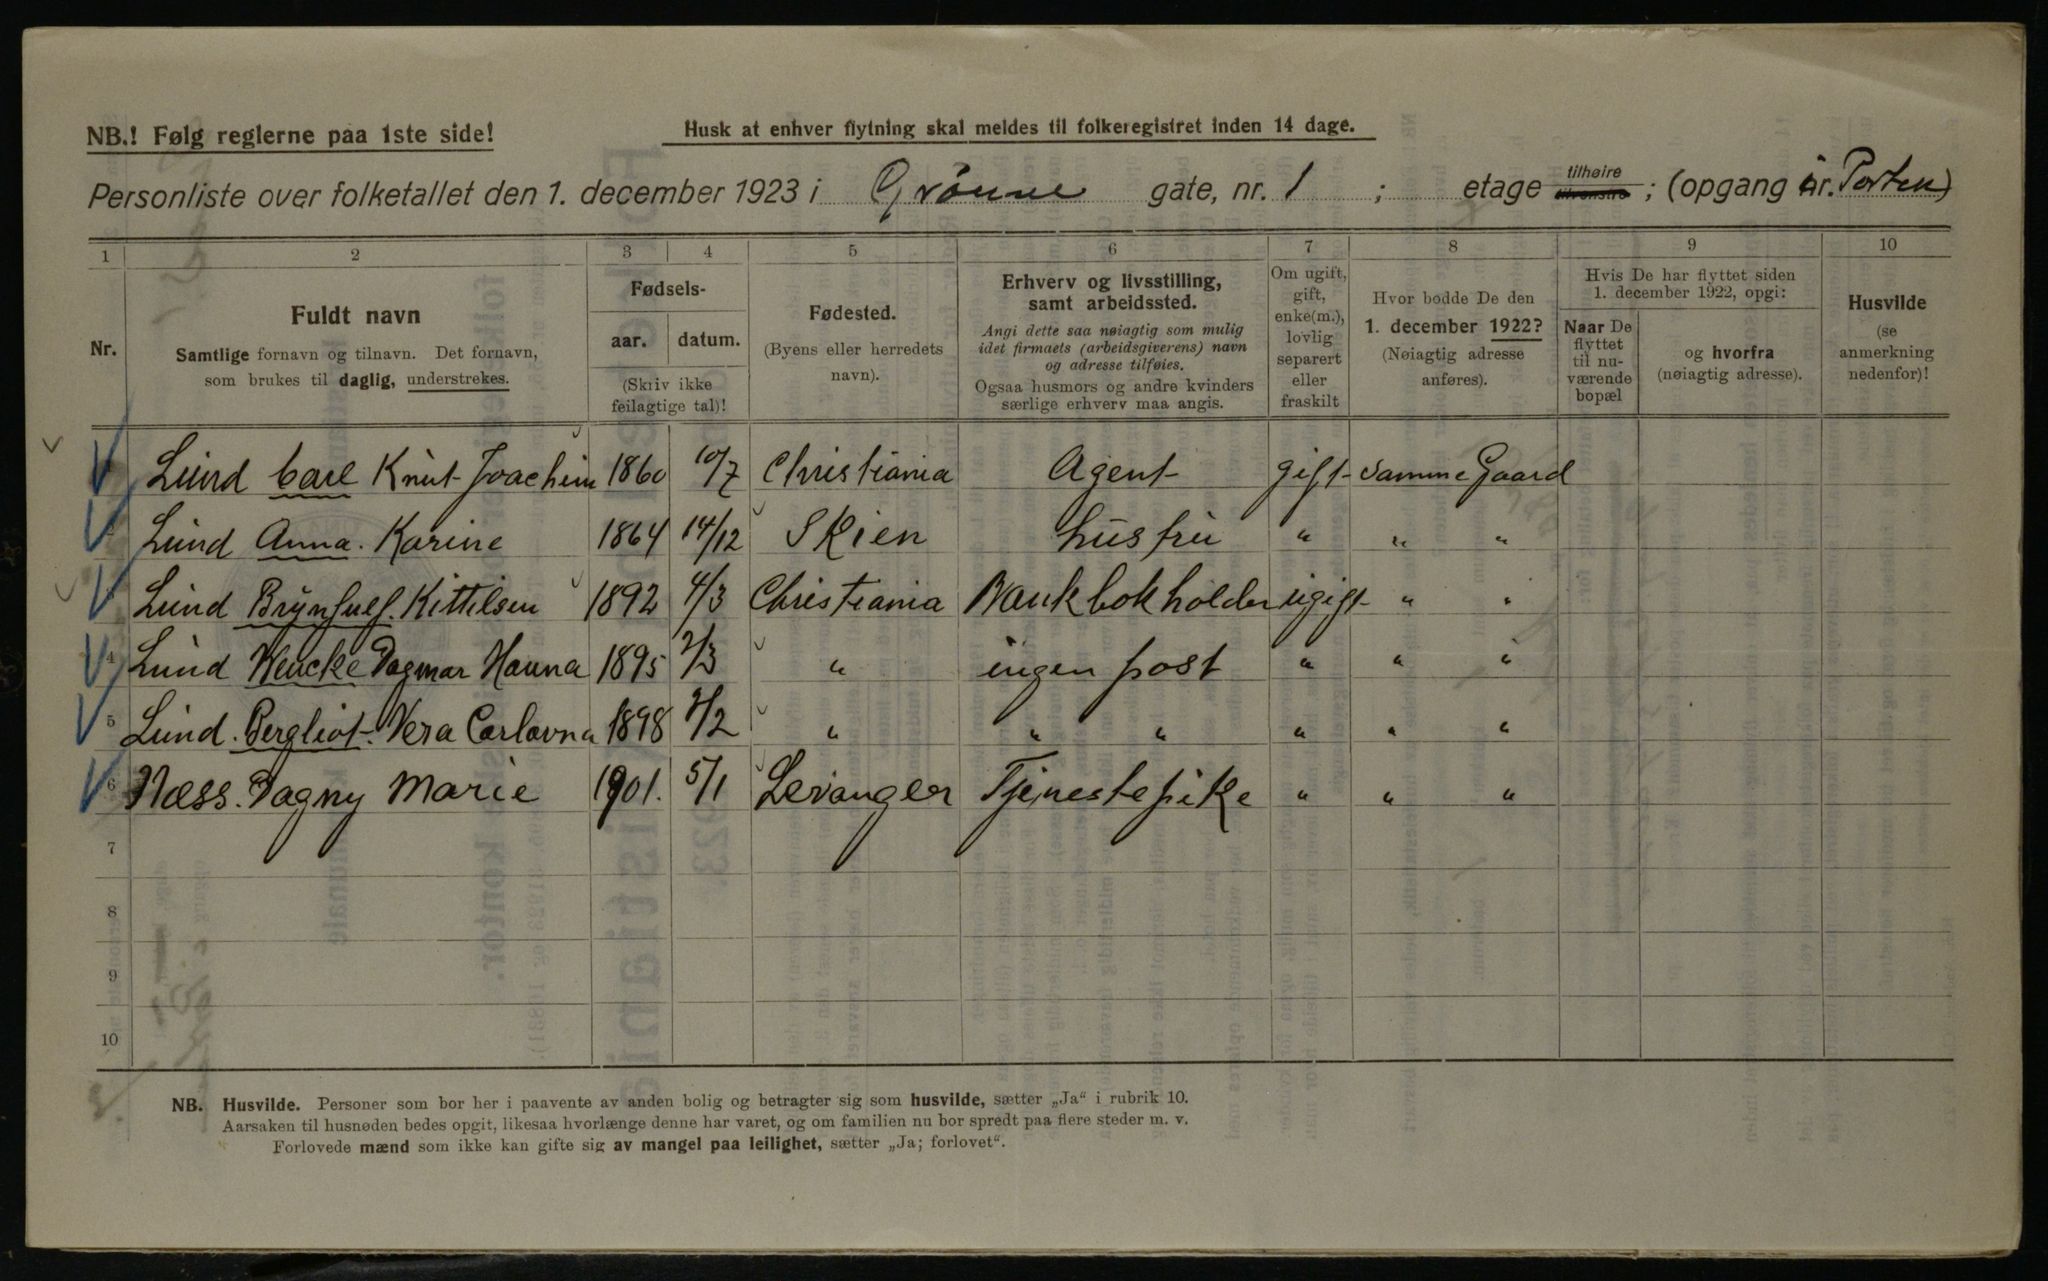 NB.! Følg reglerne paa 1ste side!
Husk at enhver flytning skal meldes til folkeregistret inden 14 dage.
Personliste over folketallet den 1. december 1923 i Grønne gate, nr. 1 ; etage tilhøire tilvenstre ; (opgang nr. Porten)
1 2 3 4 5 6 7 8 9 10
Nr.
Fuldt navn
Samtlige fornavn og tilnavn. Det fornavn,
som brukes til daglig, understrekes.
Fødsels-
aar. datum.
(Skriv ikke
feilagtige tal)!
Fødested.
(Byens eller herredets
navn).
Erhverv og livsstilling,
samt arbeidssted.
Angi dette saa nøiagtig som mulig
idet firmaets (arbeidsgiverens) navn
og adresse tilføies.
Ogsaa husmors og andre kvinders
særlige erhverv maa angis.
Om ugift,
gift,
enke(m.),
lovlig
separert
eller
fraskilt
Hvor bodde De den
1. december 1922?
(Nøiagtig adresse
anføres).
Hvis De har flyttet siden
1. december 1922, opgi:
Naar De
flyttet
til nu-
værende
bopæl
og hvorfra
(nøiagtig adresse).
Husvilde
(se
anmerkning
nedenfor)!
Lund Carl Knut Joachim 1860 10/7 Christiania Agent gift samme Gaard
Lund Anna. Karine 1864 14/12 Skien hustru " " "
Lund Brynjulf. Kittilsen 1892 4/3 Christiania Bankbokholder ugift " "
4 Lund Wencke Dagmar Hanna 1895 2/3 " ingen post " " "
5 Lund. Bergliot. Vera Carlovna 1898 2/2 " " " " " "
6 Næss. Dagny Marie 1901. 5/1 Levanger Tjenestepike " " "
7
8
9
10
NB. Husvilde. Personer som bor her i paavente av anden bolig og betragter sig som husvilde, sætter „Ja“ i rubrik 10.
Aarsaken til husnøden bedes opgit, likesaa hvorlænge denne har varet, og om familien nu bor spredt paa flere steder m. v.
Forlovede mænd som ikke kan gifte sig av mangel paa leilighet, sætter „Ja; forlovet“.